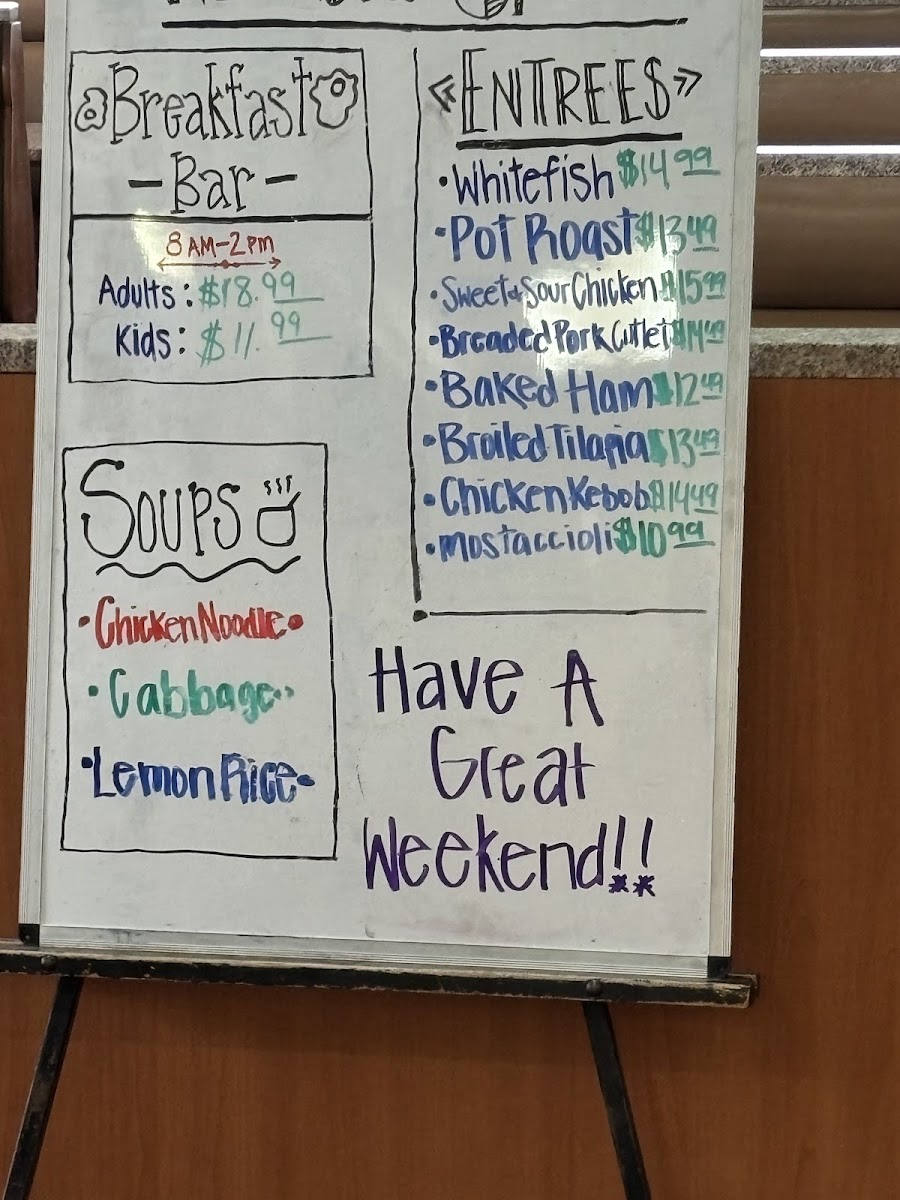 Breakfast
- Bar -
8 AM-2 PM
Adults: $18.99
Kids: $11.99
Soups
• Chicken Noodle •
• Cabbage •
• Lemon Rice •
«ENTREES»
• Whitefish $14.99
• Pot Roast $13.49
• Sweet & Sour Chicken $15.99
• Breaded Pork Cutlet $14.49
• Baked Ham $12.49
• Broiled Tilapia $13.49
• Chicken Kebob $14.49
• mostaccioli $10.99
Have A
Great
Weekend!!